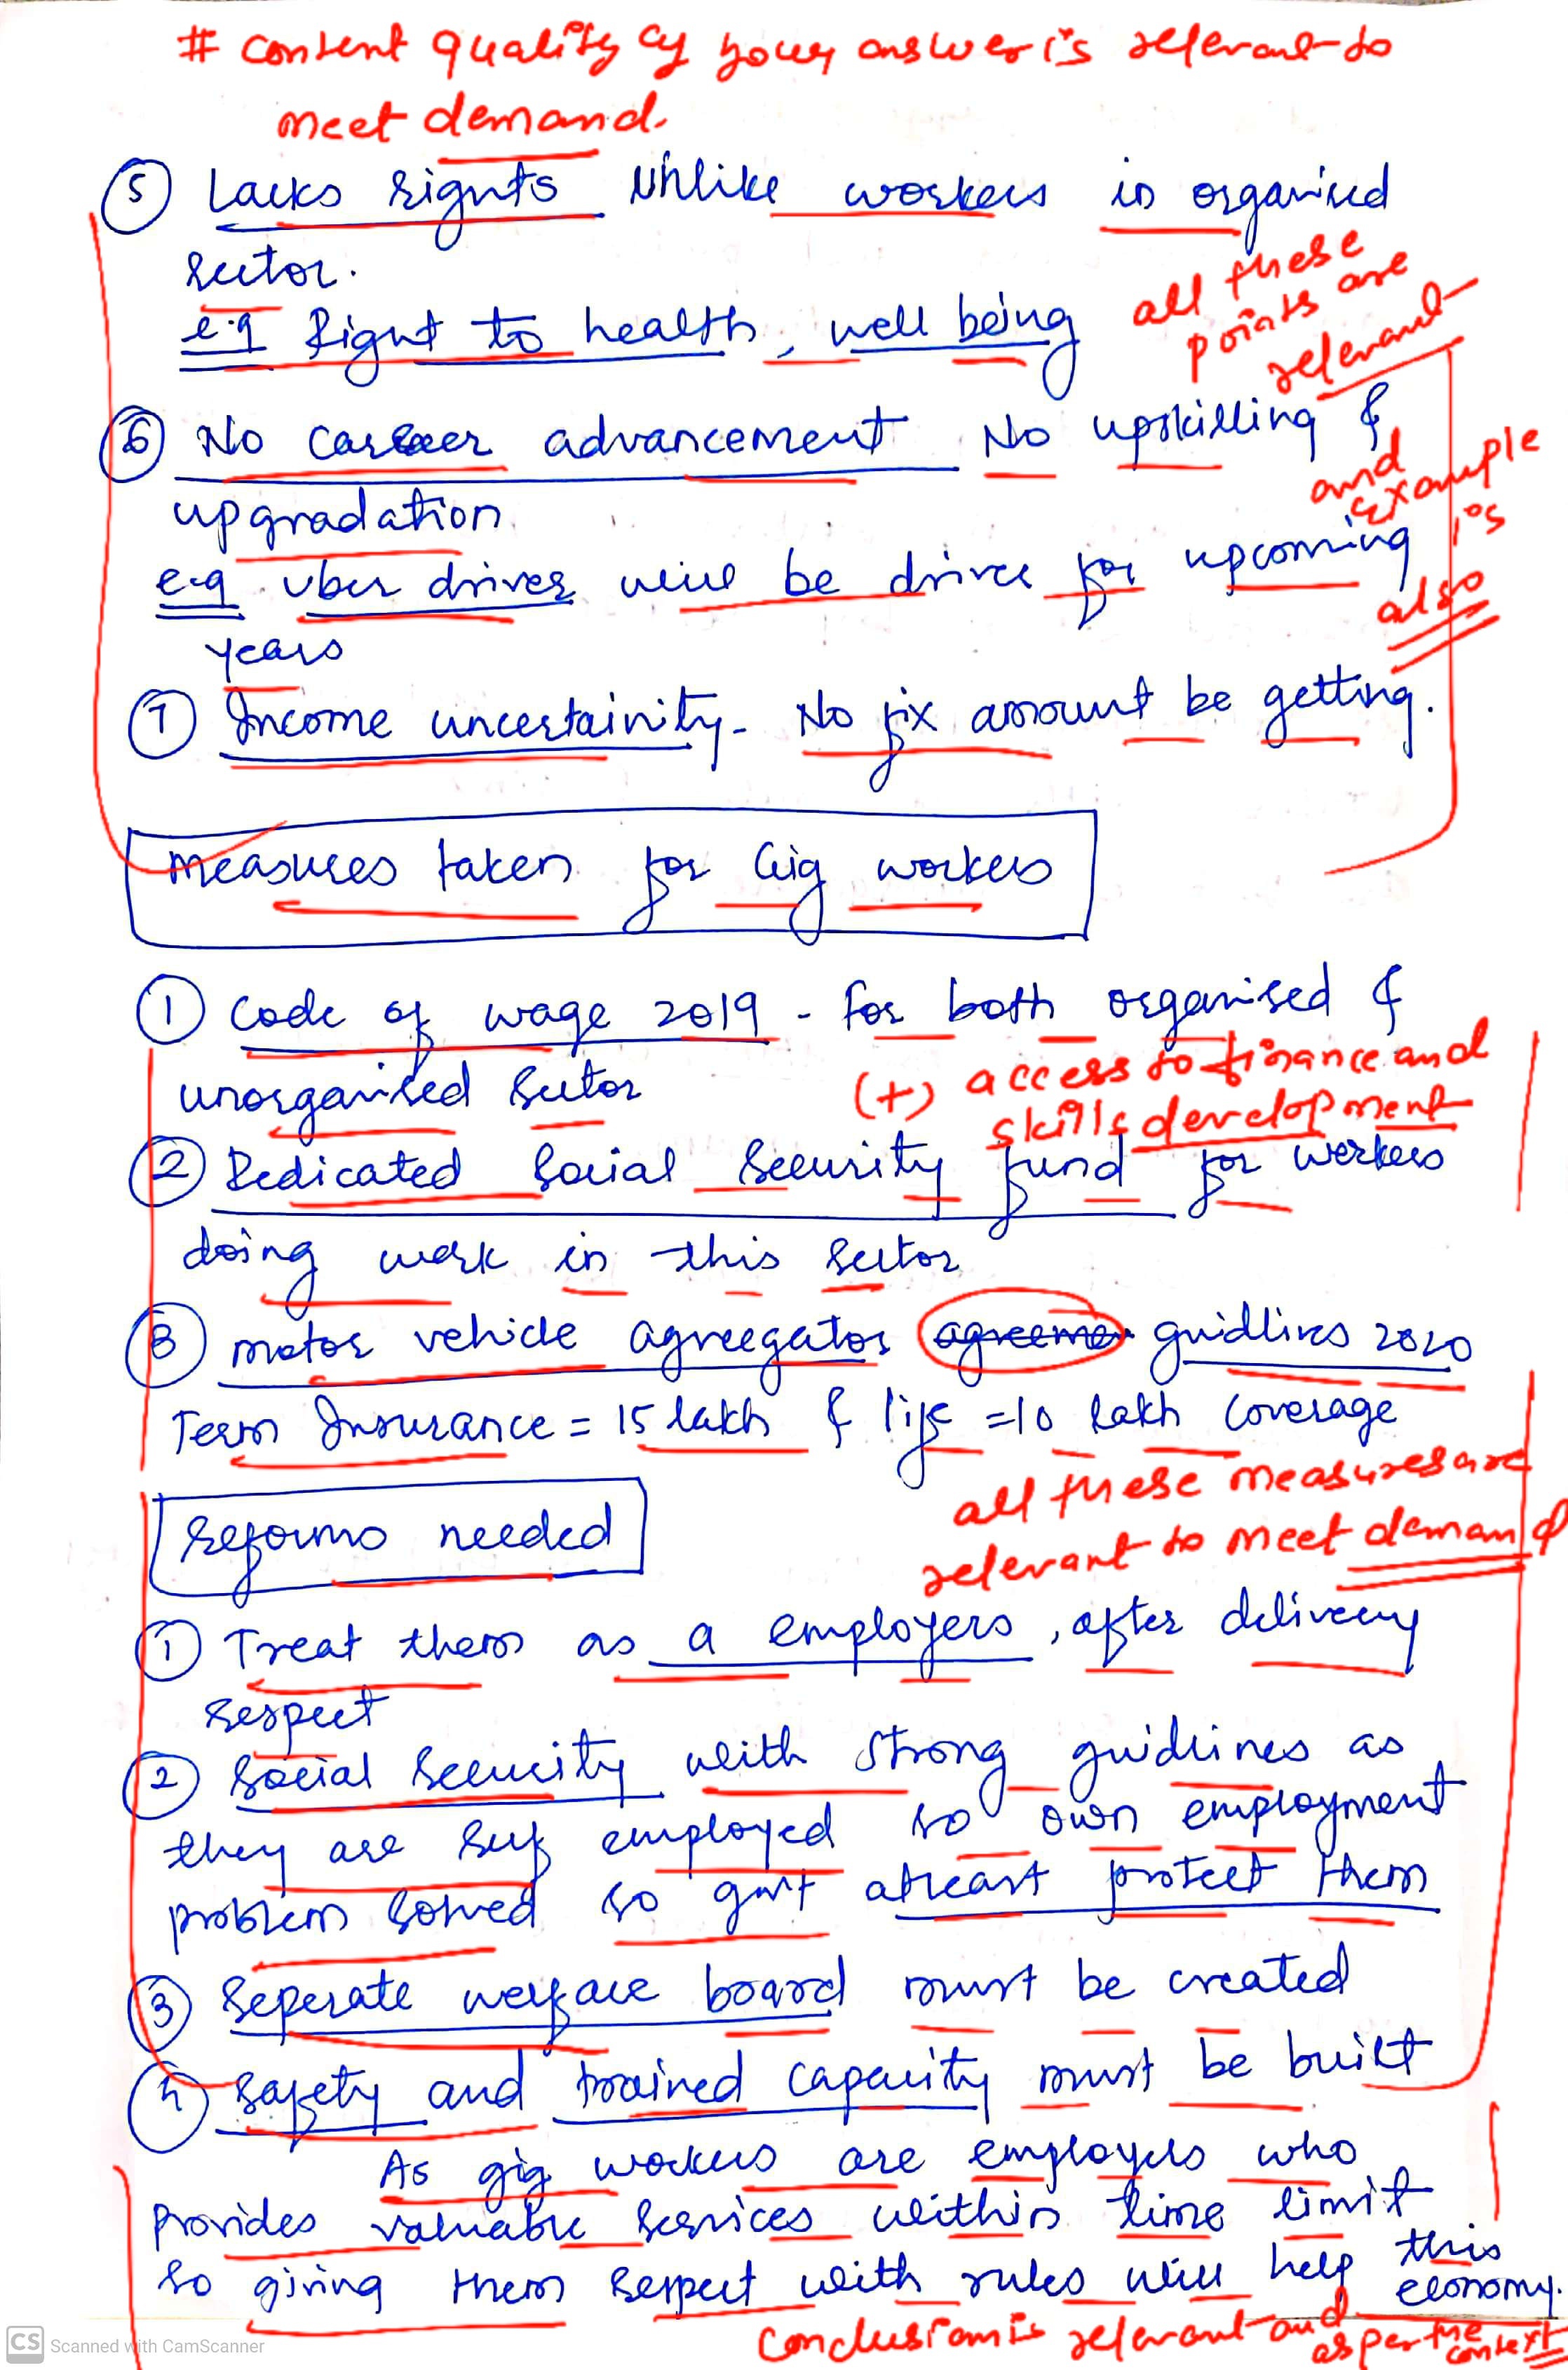 # content quality of your answer is relevant to
meet demand.
⑤ Lacks rights unlike workers in organised
sector.
e.g Right to health, well being
all these
points are
relevant
⑥ No career advancement No upskilling &
upgradation
and
example
is
also
e.g uber driver will be driver for upcoming
years
⑦ Income uncertainity - No fix amount be getting.
measures taken for Gig workers
① Code of wage 2019 - for both organised &
unorganised sector
(+) access to finance and
skills development
② Dedicated social security fund for workers
doing work in this sector
③ motor vehicle agreegator agreemen guidlines 2020
Term Insurance = 15 lakh & life = 10 lakh coverage
all these measures are
relevant to meet demand
reforms needed
① Treat them as a employers, after delivery
respect
② Social security with strong guidlines as
they are self employed so own employment
problem solved so govt atleast protect them
③ Seperate welfare board must be created
④ Safety and trained capacity must be built
As gig workers are employers who
provides valuable services within time limit
so giving them respect with rules will help this
economy.
conclusion is relevant and
as per the
context
CS Scanned with CamScanner